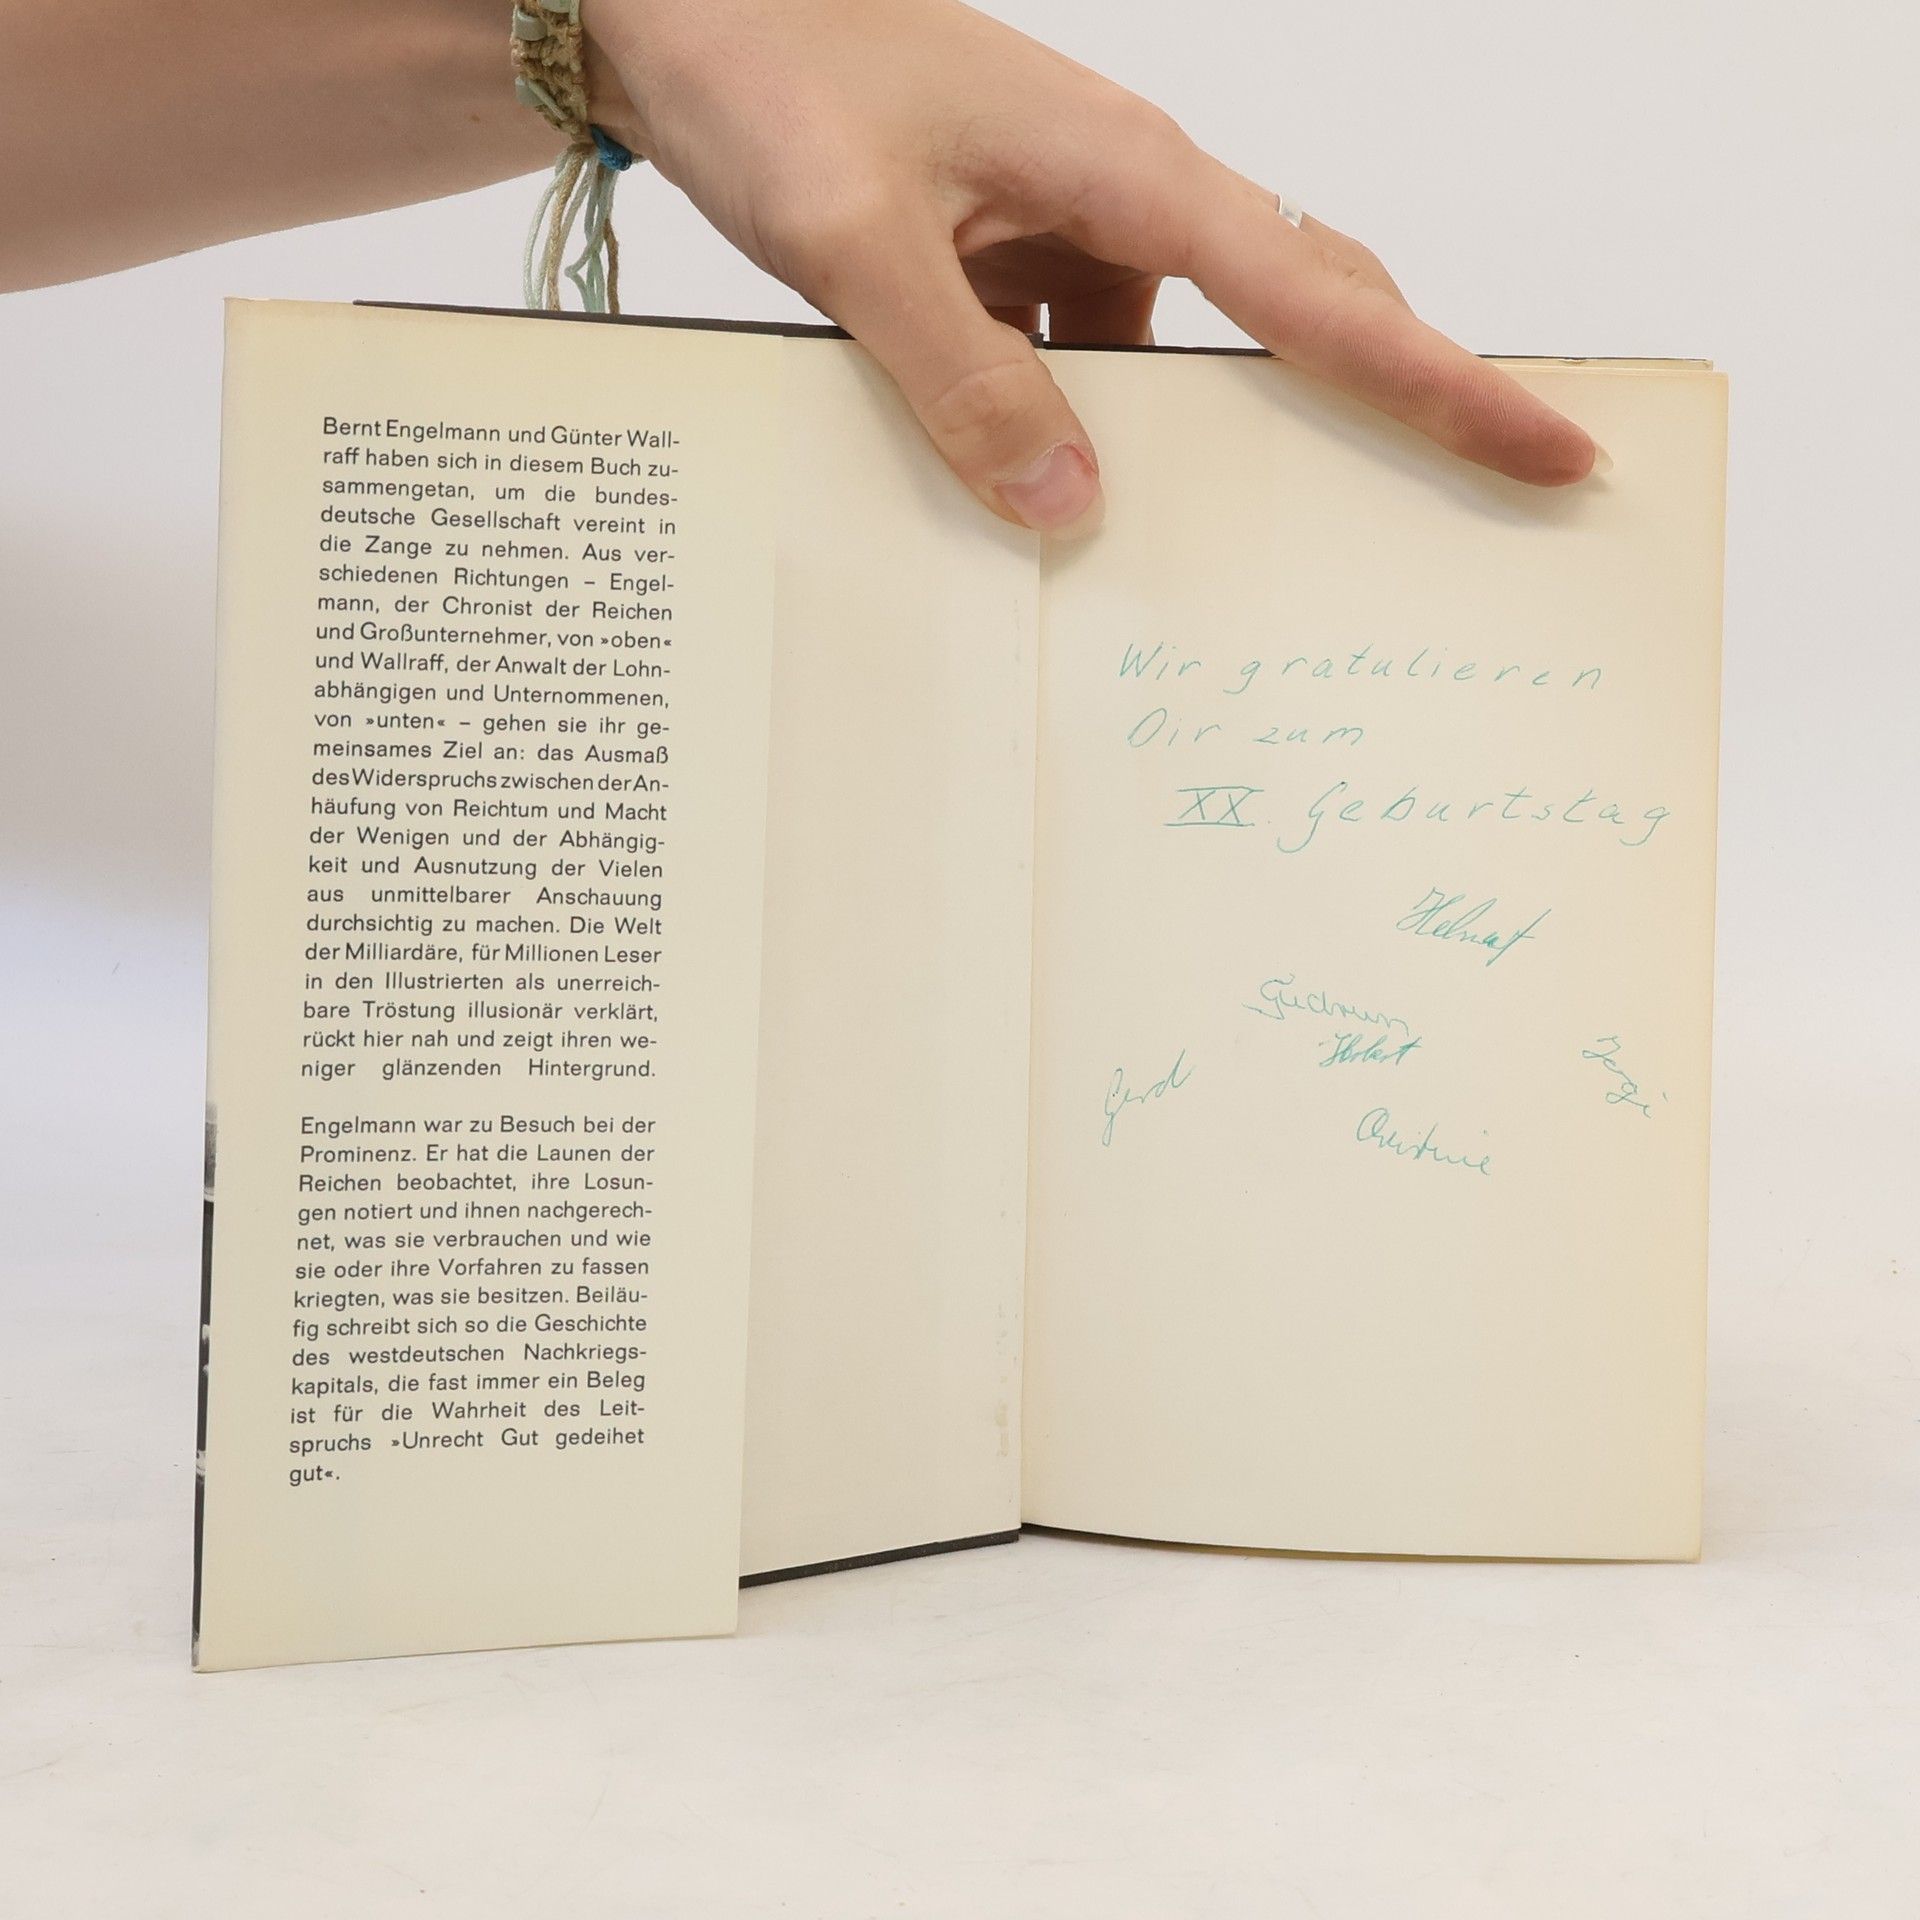 Bernt Engelmann und Günter Wall-
raff haben sich in diesem Buch zu-
sammengetan, um die bundes-
deutsche Gesellschaft vereint in
die Zange zu nehmen. Aus ver-
schiedenen Richtungen – Engel-
mann, der Chronist der Reichen
und Großunternehmer, von »oben«
und Wallraff, der Anwalt der Lohn-
abhängigen und Unternommenen,
von »unten« – gehen sie ihr ge-
meinsames Ziel an: das Ausmaß
des Widerspruchs zwischen der An-
häufung von Reichtum und Macht
der Wenigen und der Abhängig-
keit und Ausnutzung der Vielen
aus unmittelbarer Anschauung
durchsichtig zu machen. Die Welt
der Milliardäre, für Millionen Leser
in den Illustrierten als unerreich-
bare Tröstung illusionär verklärt,
rückt hier nah und zeigt ihren we-
niger glänzenden Hintergrund.
Engelmann war zu Besuch bei der
Prominenz. Er hat die Launen der
Reichen beobachtet, ihre Losun-
gen notiert und ihnen nachgerech-
net, was sie verbrauchen und wie
sie oder ihre Vorfahren zu fassen
kriegten, was sie besitzen. Beiläu-
fig schreibt sich so die Geschichte
des westdeutschen Nachkriegs-
kapitals, die fast immer ein Beleg
ist für die Wahrheit des Leit-
spruchs »Unrecht Gut gedeihet
gut«.
Wir gratulieren
Dir zum
XX. Geburtstag
Helmut
Gudrun
Gerd
Christine